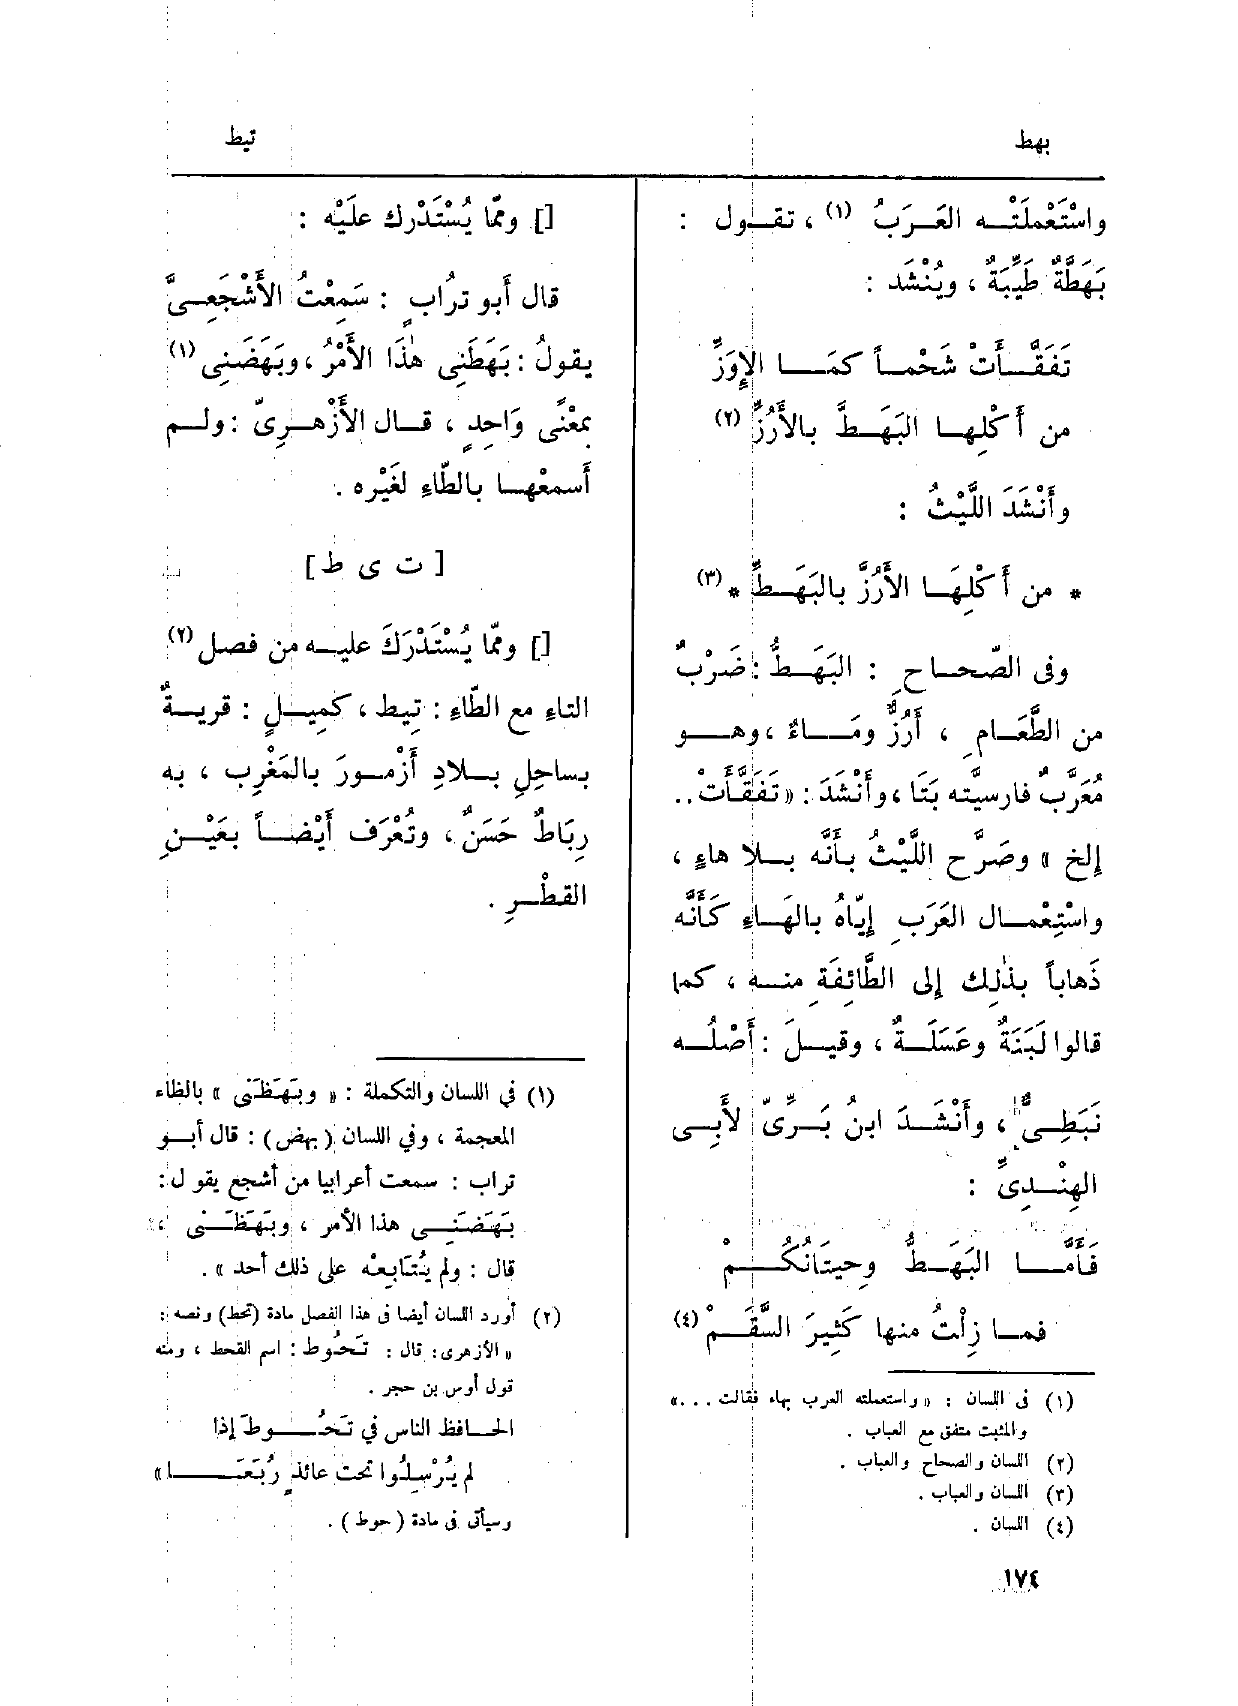 بهط
تيط
واسْتَعْمَلَتْه العَرَبُ (١) ، تقول :
بَهَطَّةٌ طَيِّبَةٌ ، ويُنْشَد :
تَفَقَّأَتْ شَحْماً كمَا الإِوَزِّ
من أَكْلِها البَهَطَّ بالأَرُزِّ (٢)
وأَنْشَدَ اللَّيْثُ :
* من أَكْلِهَا الأَرُزَّ بالبَهَطِّ * (٣)
وفى الصّحاحِ : البَهَطُّ : ضَرْبٌ
من الطَّعَامِ ، أَرُزٌّ ومَاءٌ ، وهو
مُعَرَّبٌ فارسيَّته بَتَا ، وأَنْشَدَ : « تَفَقَّأَتْ ..
إلخ » وصَرَّح اللَّيْثُ بأَنَّه بلا هاءٍ ،
واسْتِعْمال العَرَبِ إِيّاهُ بالهَاءِ كَأَنَّه
ذَهاباً بذٰلِك إلى الطَّائِفَةِ منه ، كما
قالوا لَبَنَةٌ وعَسَلَةٌ ، وقيلَ : أَصْلُه
نَبَطِىٌّ ، وأَنْشَدَ ابنُ بَرِّىّ لأَبِى
الهِنْدِىِّ :
فَأَمَّا البَهَطُّ وحِيتَانُكُمْ
فما زِلْتُ منها كَثِيرَ السَّقَمْ (٤)
(١) فى اللسان : « واستعملته العرب بهاء فقالت . . . »
والمثبت متفق مع العباب .
(٢) اللسان والصحاح والعباب .
(٣) اللسان والعباب .
(٤) اللسان .
[] وممّا يُسْتَدْرك علَيْه :
قال أَبو تُرابٍ : سَمِعْتُ الأَشْجَعِىَّ
يقولُ : بَهَطَنِى هٰذَا الأَمْرُ ، وبَهَضَنِى (١)
بمعْنًى وَاحِدٍ ، قال الأَزْهَرِىّ : ولم
أَسمعْها بالطّاءِ لغَيْره .
[ ت ى ط ]
[] وممّا يُسْتَدْرَكَ عليه من فصل (٢)
التاءِ مع الطّاءِ : تِيط ، كمِيلٍ : قريةٌ
بساحِلِ بلادِ أَزْمورَ بالمَغْرِب ، به
رِبَاطٌ حَسَنٌ ، وتُعْرَف أَيْضاً بعَيْنِ
القطْرِ .
(١) في اللسان والتكملة : « وبَهَظَنى » بالظاء
المعجمة ، وفي اللسان (بهض) : قال أبو
تراب : سمعت أعرابيا من أشجع يقول :
بَهَضَنِى هذا الأمر ، وبَهَظَنى ،
قال : ولم يُتَابِعْه على ذلك أحد » .
(٢) أورد اللسان أيضا فى هذا الفصل مادة (تحط) ونصه :
« الأزهرى : قال : تَحُوط : اسم القحط ، ومنه
قول أوس بن حجر .
الحافظ الناس في تَحُوطَ إذا
لم يُرْسِلُوا تحت عائذٍ رُبَعَا »
وسيأتى فى مادة (حوط) .
١٧٤